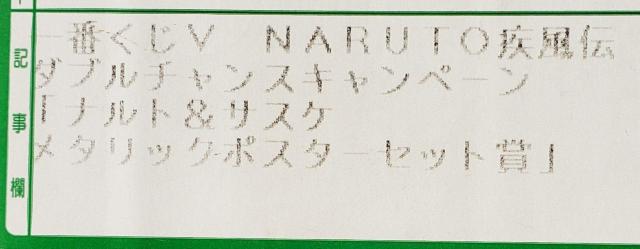 一番くじV NARUTO疾風伝
ダブルチャンスキャンペーン
「ナルト&リスケ
メタリックポスターセット賞」
記事欄